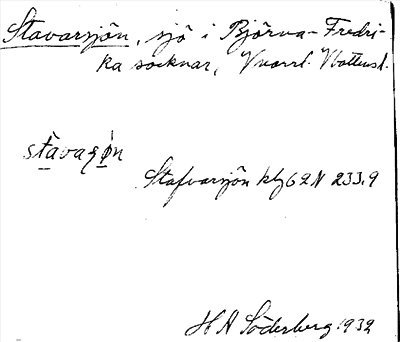 Stavarsjön, sjö i Björna-Fredri-
ka socknar, V norrl. V bottensl.
stavaʂøn
Stafvarsjön kbg 62 N 233.9
H A Söderberg 1932